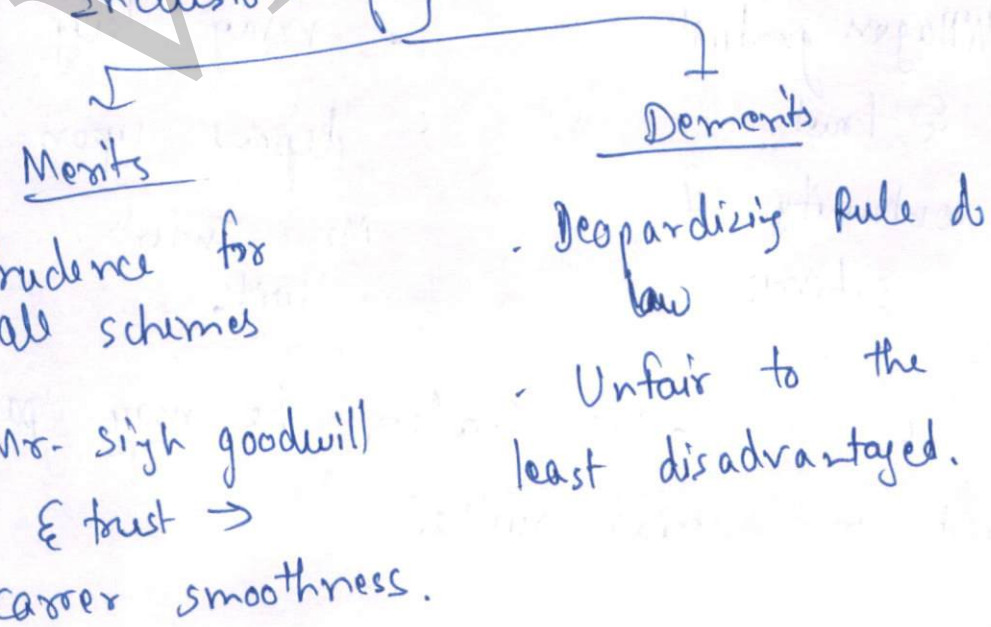 Merits
rudence for
all schemes
Mr. sigh goodwill
& trust →
carrer smoothness.
Demerits
- Deopardizig Rule do
law
- Unfair to the
least disadvantaged.